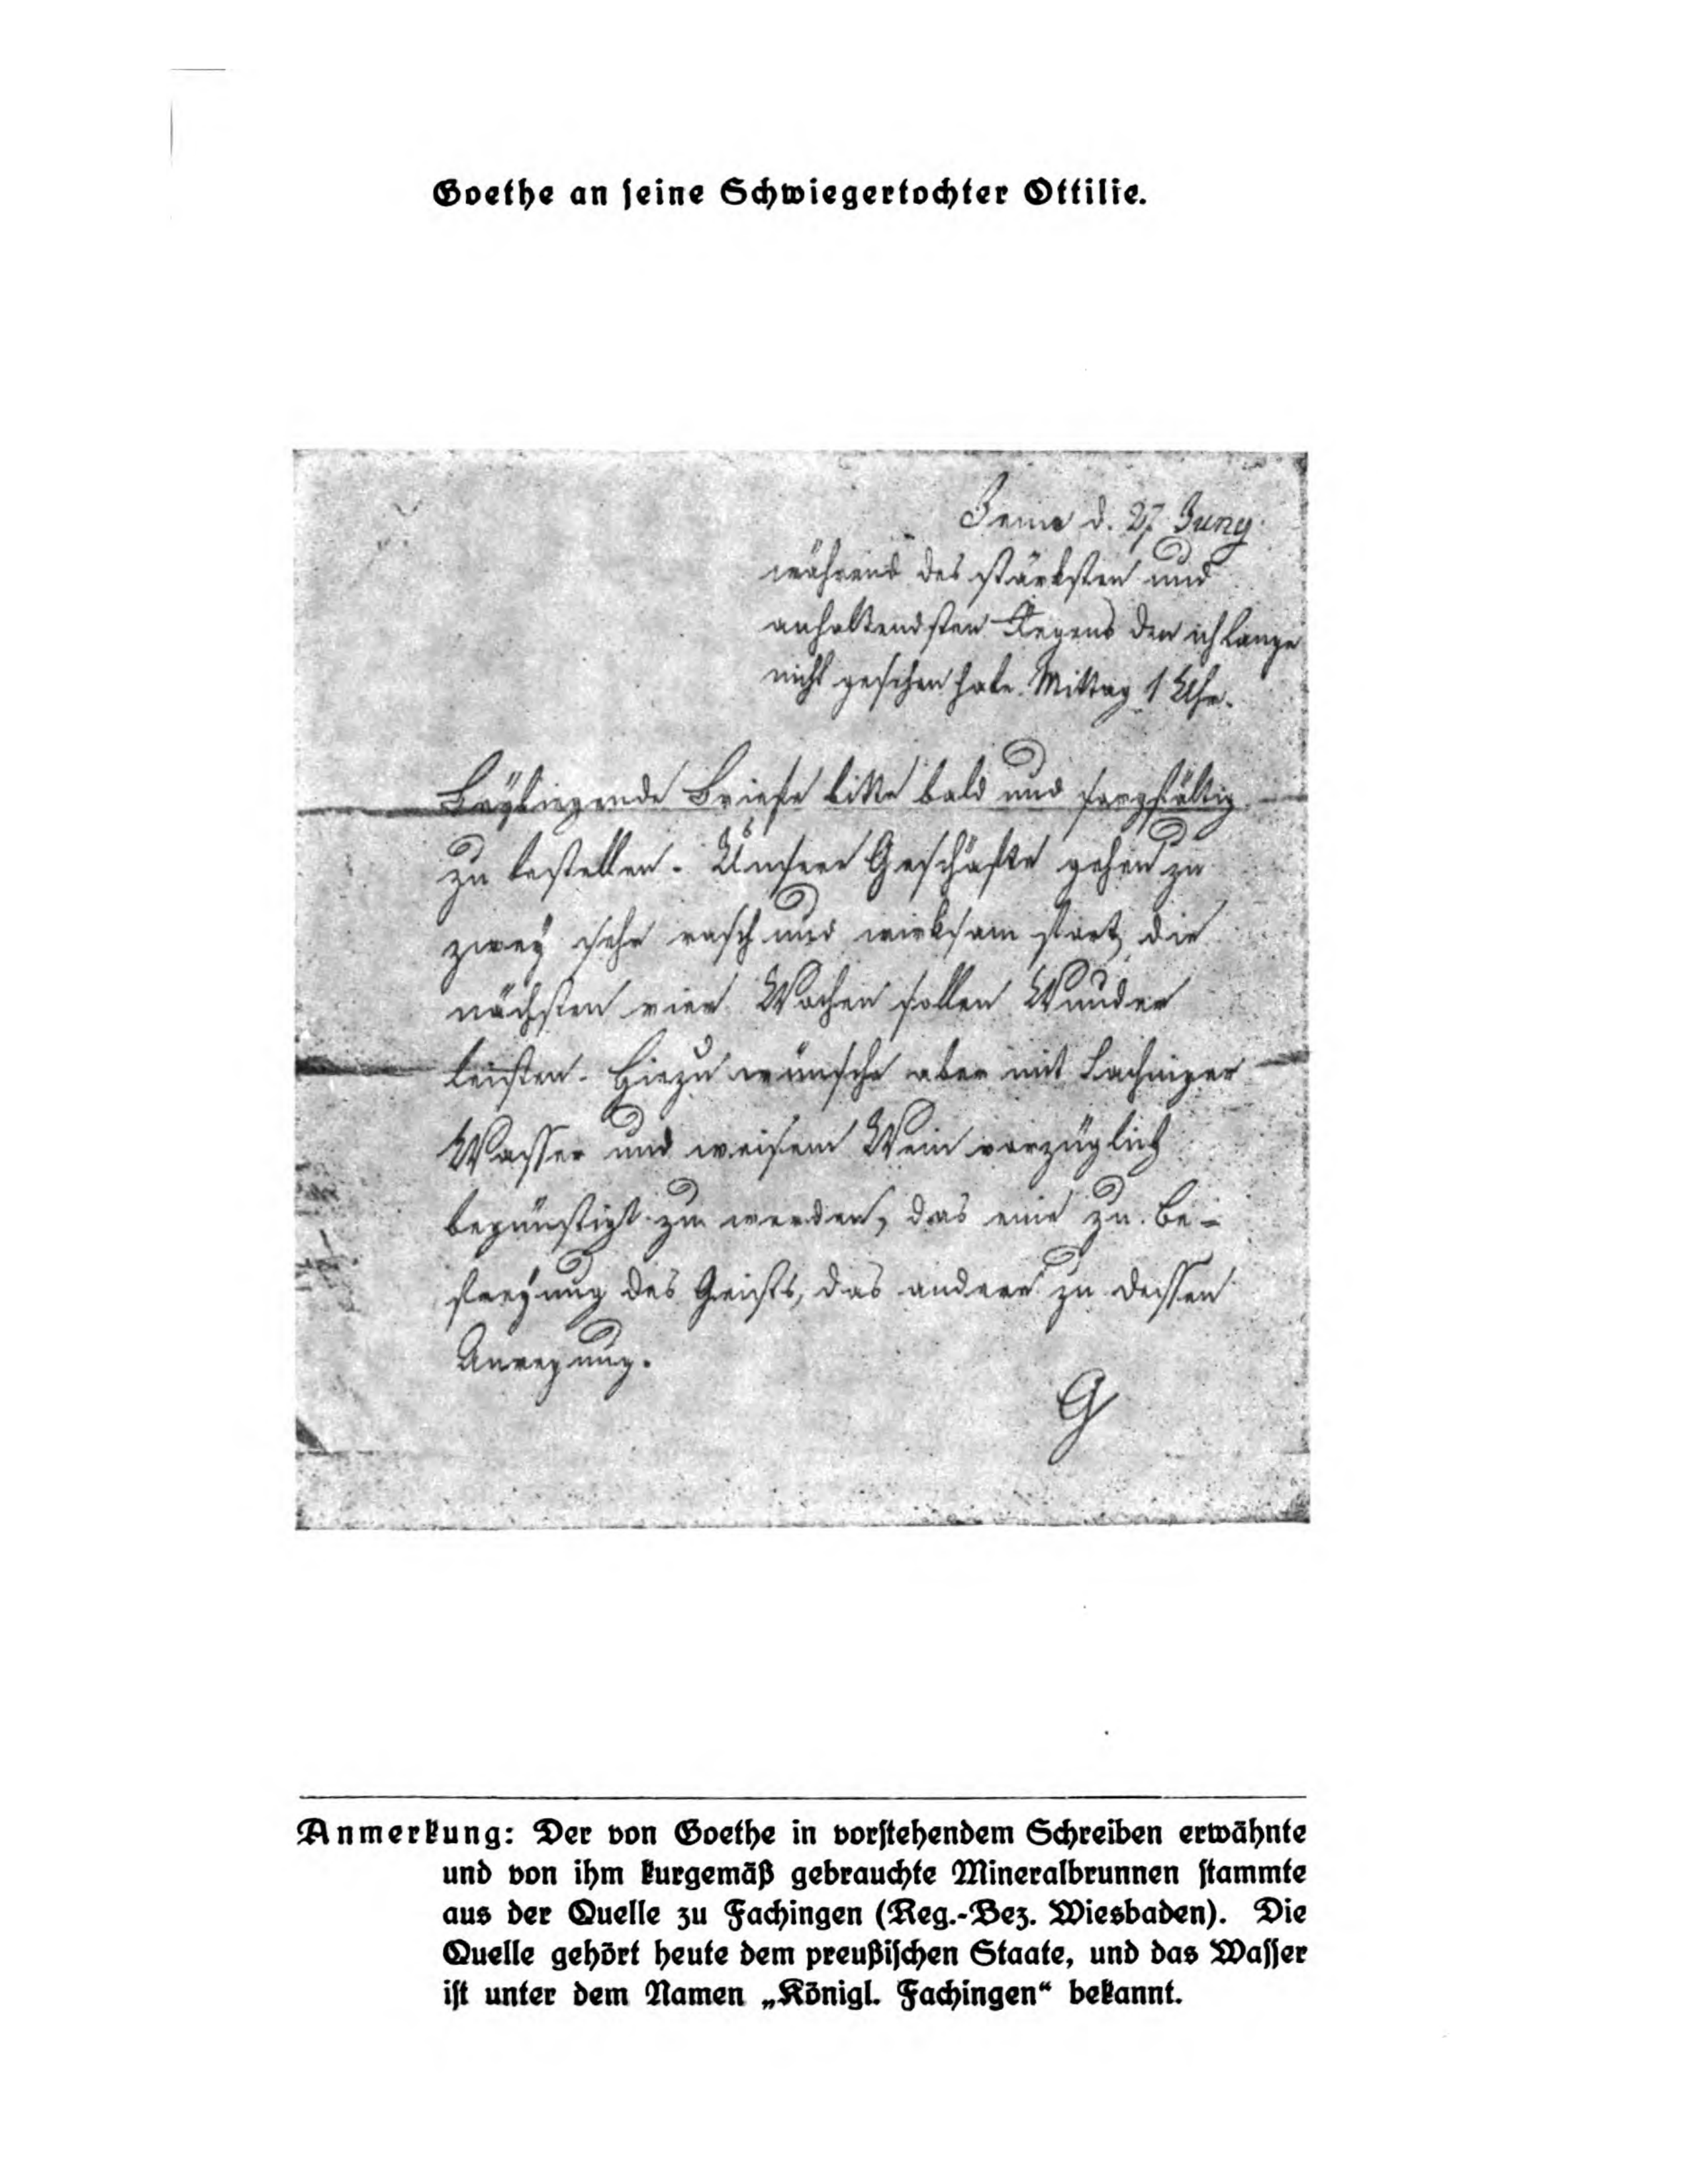 Goethe an seine Schwiegertochter Ottilie.
Jena d. 27 Juny.
während des stärksten und
anhaltendsten Regens den ich lange
nicht gesehen habe. Mittag 1 Uhr.
Beyliegende Briefe bitte bald und sorgfältig
zu bestellen. Unsere Geschäfte gehen zu
zwey sehr rasch und wirksam fort, die
nächsten vier Wochen sollen Wunder
leisten. Hiezu wünsche aber mit Fachinger
Wasser und weisem Wein vorzüglich
begünstigt zu werden, das eine zu Be-
freyung des Geists, das andere zu dessen
Anregung.
G
Anmerkung: Der von Goethe in vorstehendem Schreiben erwähnte
und von ihm kurgemäß gebrauchte Mineralbrunnen stammte
aus der Quelle zu Fachingen (Reg.-Bez. Wiesbaden). Die
Quelle gehört heute dem preußischen Staate, und das Wasser
ist unter dem Namen „Königl. Fachingen“ bekannt.